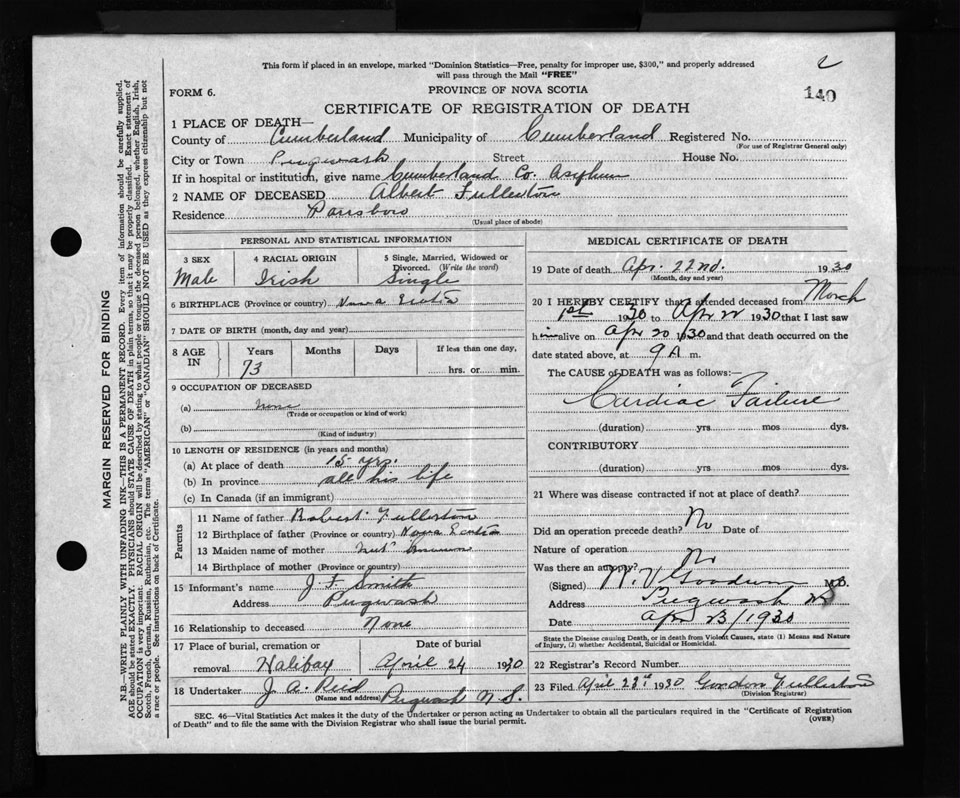 This form if placed in an envelope, marked "Dominion Statistics—Free, penalty for improper use, $300," and properly addressed
will pass through the Mail "FREE"
FORM 6.
PROVINCE OF NOVA SCOTIA
140
CERTIFICATE OF REGISTRATION OF DEATH
1 PLACE OF DEATH—
County of Cumberland Municipality of Cumberland Registered No.
(For use of Registrar General only)
City or Town Pugwash Street House No.
If in hospital or institution, give name Cumberland Co. Asylum
2 NAME OF DECEASED Albert Fullerton
Residence Parrsboro
(Usual place of abode)
PERSONAL AND STATISTICAL INFORMATION
3 SEX
Male
4 RACIAL ORIGIN
Irish
5 Single, Married, Widowed or
Divorced. (Write the word)
Single
6 BIRTHPLACE (Province or country) Nova Scotia
7 DATE OF BIRTH (month, day and year)
8 AGE
IN
Years
73
Months
Days
If less than one day,
hrs. or min.
9 OCCUPATION OF DECEASED
(a) none
(Trade or occupation or kind of work)
(b)
(Kind of industry)
10 LENGTH OF RESIDENCE (in years and months)
(a) At place of death 15 yrs.
(b) In province all his life
(c) In Canada (if an immigrant)
Parents
11 Name of father Robert Fullerton
12 Birthplace of father (Province or country) Nova Scotia
13 Maiden name of mother not known
14 Birthplace of mother (Province or country)
15 Informant's name J. F. Smith
Address Pugwash
16 Relationship to deceased None
17 Place of burial, cremation or
removal Halifax
Date of burial
April 24 1930
18 Undertaker J. A. Reid
(Name and address) Pugwash N. S.
MEDICAL CERTIFICATE OF DEATH
19 Date of death Apr. 22nd. 1930
(Month, day and year)
20 I HEREBY CERTIFY that I attended deceased from March
1st 1930 to Apr 22 1930 that I last saw
him alive on Apr 20 1930 and that death occurred on the
date stated above, at 9 A m.
The CAUSE of DEATH was as follows:—
Cardiac Failure
(duration) yrs mos dys.
CONTRIBUTORY
(duration) yrs. mos dys.
21 Where was disease contracted if not at place of death?
Did an operation precede death? No Date of
Nature of operation
Was there an autopsy? No
(Signed) Goodwin M.D.
Address Pugwash NS
Date Apr 23/1930
State the Disease causing Death, or in death from Violent Causes, state (1) Means and Nature
of Injury, (2) whether Accidental, Suicidal or Homicidal.
22 Registrar's Record Number
23 Filed April 23rd 1930 Gordon Fullerton
(Division Registrar)
SEC. 46—Vital Statistics Act makes it the duty of the Undertaker or person acting as Undertaker to obtain all the particulars required in the "Certificate of Registration
of Death" and to file the same with the Division Registrar who shall issue the burial permit.
(OVER)
MARGIN RESERVED FOR BINDING
N.B.—WRITE PLAINLY WITH UNFADING INK—THIS IS A PERMANENT RECORD. Every item of information should be carefully supplied.
AGE should be stated EXACTLY. PHYSICIANS should STATE CAUSE OF DEATH in plain terms, so that it may be properly classified. Exact statement of
OCCUPATION is very important. RACIAL ORIGIN will be described by stating to what people or tongue the deceased person belonged, whether English, Irish,
Scotch, French, German, Russian, Ruthenian, etc. The terms "AMERICAN" or "CANADIAN" SHOULD NOT BE USED as they express citizenship but not
a race or people. See instructions on back of Certificate.